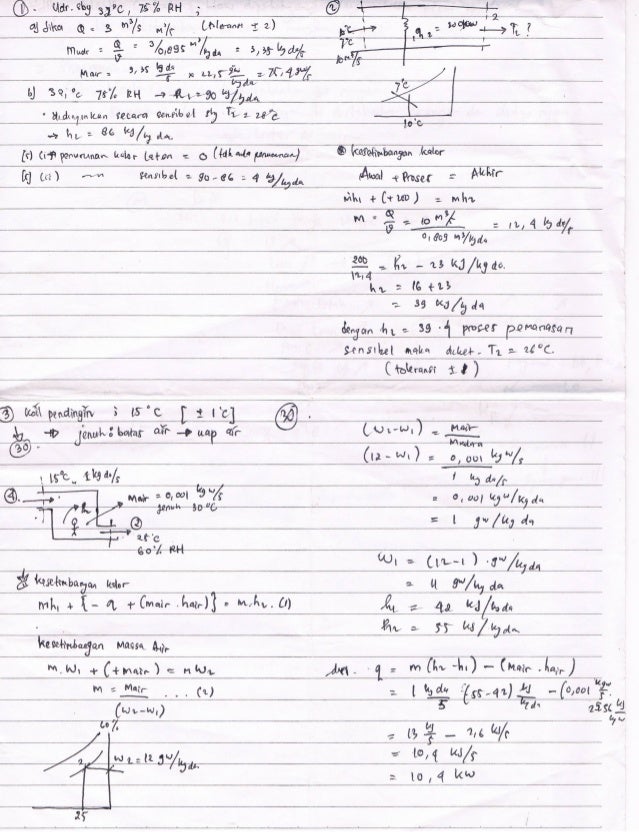 ①. Udr. sby 32°C, 75% RH ;
a) Jika Q = 3 m³/s (toleransi ± 2)
Mudr = Q/v = 3/0,895 m³/kgda = 3,35 kg da/s
Mair = 3,35 kg da/s × 22,5 gw/kgda = 75,4 gw/s
b) 32, °C 75% RH → h1 = 90 kJ/kgda
• didinginkan secara sensibel sby T2 = 28°C
→ h2 = 86 kJ/kg da.
[5] (i) penurunan kalor laten = 0 (tdk ada penurunan)
[5] (ii) sensibel = 90 - 86 = 4 kJ/kgda
②
10°C
7°C
10 m³/s
2
→ T2 ?
7°C
10°C
Kesetimbangan kalor
Awal + Proses = Akhir
mh1 + (+200) = mh2
m = Q/v = 10 m³/s / 0,809 m³/kgda = 12,4 kg da/s
200/12,4 = h2 - 23 kJ/kg da.
h2 = 16 + 23
= 39 kJ/kg da
dengan h2 = 39. & proses pemanasan
sensibel maka diket. T2 = 26°C.
(toleransi ± 1)
③ koil pendingin ; 15°C [± 1°C]
(30) jenuh : batas air → uap air
④.
15°C, 1 kg da/s
Mair = 0,001 kg w/s
jenuh 30°C
②
25°C
60% RH
kesetimbangan kalor
mh1 + {- q + (mair . hair)} = m.h2. (1)
kesetimbangan Massa Air
m.W1 + (+mair) = mW2
m = Mair/(W2-W1) ... (2)
60%
2
W2 = 12 gw/kgda.
25
(30).
(W2-W1) = Mair/Mudara
(12-W1) = 0,001 kg w/s / 1 kg da/s
= 0,001 kgw/kgda
= 1 gw/kg da
W1 = (12-1) . gw/kgda
= 11 gw/kg da
h1 = 42 kJ/kgda
h2 = 55 kJ/kgda
q = m (h2-h1) - (Mair . hair)
= 1 kg da/s (55-42) kJ/kg da - (0,001 kgw/s . 2556 kJ/kgw
= 13 kJ/s - 2,6 kJ/s
= 10,4 kJ/s
= 10,4 kW